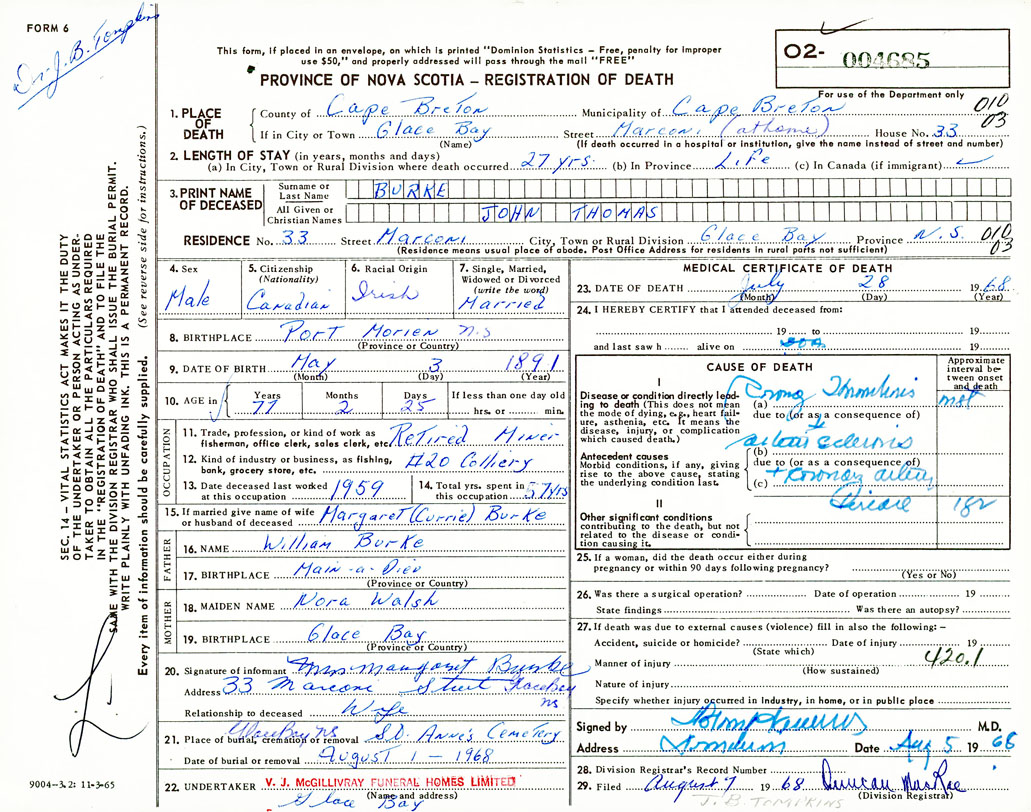 FORM 6
Dr. J. B. Tompkins
This form, if placed in an envelope, on which is printed "Dominion Statistics – Free, penalty for improper
use $50," and properly addressed will pass through the mail "FREE"
PROVINCE OF NOVA SCOTIA – REGISTRATION OF DEATH
O2- 004685
For use of the Department only
010
03
1. PLACE OF DEATH
County of Cape Breton Municipality of Cape Breton
If in City or Town Glace Bay Street Marconi (at home) House No. 33
(Name) (If death occurred in a hospital or institution, give the name instead of street and number)
2. LENGTH OF STAY (in years, months and days)
(a) In City, Town or Rural Division where death occurred 27 yrs. (b) In Province Life (c) In Canada (if immigrant)
3. PRINT NAME OF DECEASED
Surname or Last Name BURKE
All Given or Christian Names JOHN THOMAS
RESIDENCE No. 33 Street Marconi City, Town or Rural Division Glace Bay Province N.S. 010
03
(Residence means usual place of abode. Post Office Address for residents in rural parts not sufficient)
4. Sex
Male
5. Citizenship
(Nationality)
Canadian
6. Racial Origin
Irish
7. Single, Married,
Widowed or Divorced
(write the word)
Married
8. BIRTHPLACE Port Morien N.S
(Province or Country)
9. DATE OF BIRTH May 3 1891
(Month) (Day) (Year)
10. AGE in
Years Months Days If less than one day old
77 2 25 hrs. or min.
OCCUPATION
11. Trade, profession, or kind of work as
fishermen, office clerk, sales clerk, etc. Retired Miner
12. Kind of industry or business, as fishing,
bank, grocery store, etc. #20 Colliery
13. Date deceased last worked
at this occupation 1959
14. Total yrs. spent in
this occupation 57 yrs
15. If married give name of wife
or husband of deceased Margaret (Currie) Burke
FATHER
16. NAME William Burke
17. BIRTHPLACE Main-a-Dieu
(Province or Country)
MOTHER
18. MAIDEN NAME Nora Walsh
19. BIRTHPLACE Glace Bay
(Province or Country)
20. Signature of informant Mrs Margaret Burke
Address 33 Marconi Street Glace Bay
ns
Relationship to deceased Wife
Glace Bay NS
21. Place of burial, cremation or removal St. Anne's Cemetery
Date of burial or removal August 1 – 1968
22. UNDERTAKER V. J. McGILLIVRAY FUNERAL HOMES LIMITED
(Name and address)
Glace Bay
MEDICAL CERTIFICATE OF DEATH
23. DATE OF DEATH July 28 1968
(Month) (Day) (Year)
24. I HEREBY CERTIFY that I attended deceased from:
19 to 19
and last saw h alive on 19
CAUSE OF DEATH
Approximate
interval be-
tween onset
and death
I
Disease or condition directly lead-
ing to death (This does not mean
the mode of dying, e.g., heart fail-
ure, asthenia, etc. It means the
disease, injury, or complication
which caused death.)
(a) Coronary Thrombosis
due to (or as a consequence of)
Antecedent causes
Morbid conditions, if any, giving
rise to the above cause, stating
the underlying condition last.
(b) arteriosclerosis
due to (or as a consequence of)
(c) + coronary artery
disease
II
Other significant conditions
contributing to the death, but not
related to the disease or condi-
tion causing it.
25. If a woman, did the death occur either during
pregnancy or within 90 days following pregnancy?
(Yes or No)
26. Was there a surgical operation? Date of operation 19
State findings Was there an autopsy?
27. If death was due to external causes (violence) fill in also the following: –
Accident, suicide or homicide? Date of injury 19
(State which)
420.1
Manner of injury
(How sustained)
Nature of injury
Specify whether injury occurred in Industry, in home, or in public place
Signed by M.D.
Address Date Aug 5 1968
28. Division Registrar's Record Number
29. Filed August 7 1968 Duncan MacRae
(Division Registrar)
J. B. TOMPKINS
SEC. 14 – VITAL STATISTICS ACT MAKES IT THE DUTY
OF THE UNDERTAKER OR PERSON ACTING AS UNDER-
TAKER TO OBTAIN ALL THE PARTICULARS REQUIRED
IN THE "REGISTRATION OF DEATH" AND TO FILE THE
SAME WITH THE DIVISION REGISTRAR WHO SHALL ISSUE THE BURIAL PERMIT.
WRITE PLAINLY WITH UNFADING INK. THIS IS A PERMANENT RECORD.
Every item of information should be carefully supplied. (See reverse side for instructions.)
9004–3.2: 11-3-65